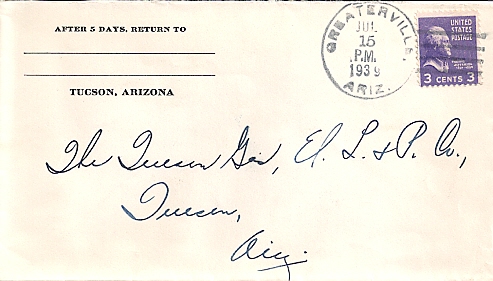 AFTER 5 DAYS, RETURN TO
TUCSON, ARIZONA
GREATERVILLE,
JUL
15
P.M.
1939
ARIZ.
UNITED
STATES
POSTAGE
3 CENTS 3
The Tucson Gas, El. L. & P. Co.,
Tucson,
Ariz.